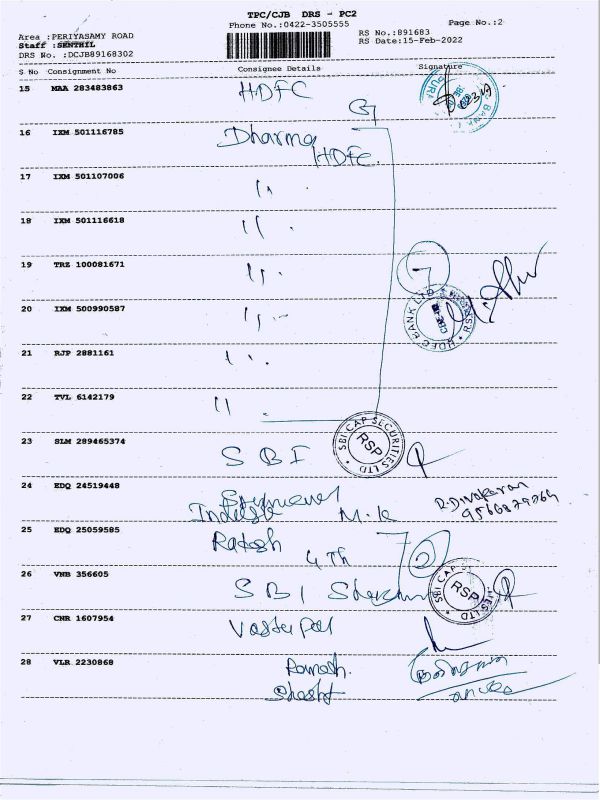 TPC/CJB DRS - PC2
Phone No.:0422-3505555
Page No.:2
Area :PERIYASAMY ROAD
Staff :SENTHIL
DRS No. :DCJB89168302
RS No.:891683
RS Date:15-Feb-2022
S No Consignment No Consignee Details Signature
15 MAA 283483863 HDFC
16 IXM 501116785 Dharma
HDFC.
17 IXM 501107006 "
18 IXM 501116618 "
19 TRZ 100081671 "
7
HDFC BANK LTD
20 IXM 500990587 "
21 RJP 2881161 "
22 TVL 6142179 "
SBI CAP SECURITIES LTD
RSP
23 SLM 289465374 SBI
24 EDQ 24519448
R.Divakaran
25 EDQ 25059585 Rakesh
4th
26 VNB 356605 SBI
RSP
27 CNR 1607954
28 VLR 2230868 Ramesh.